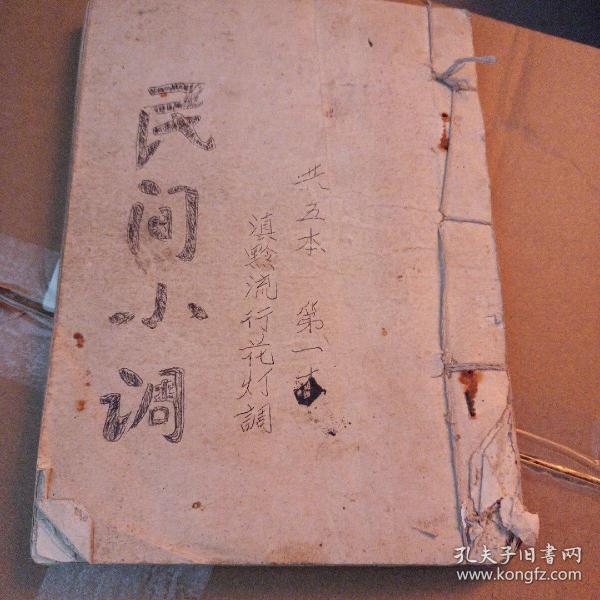 共五本 第一本
滇黔流行花灯調
民间小调
孔夫子旧書网
www.kongfz.com